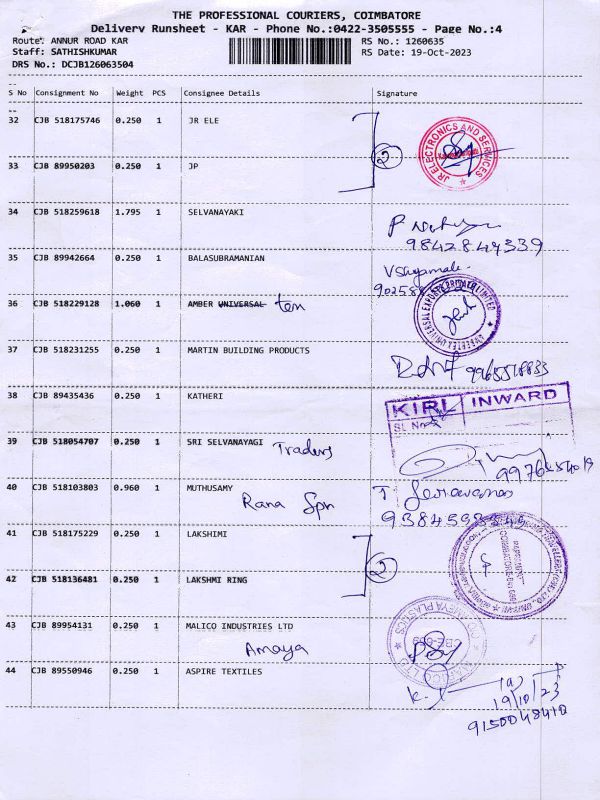 THE PROFESSIONAL COURIERS, COIMBATORE
Delivery Runsheet - KAR - Phone No.:0422-3505555 - Page No.:4
Route: ANNUR ROAD KAR
RS No.: 1260635
Staff: SATHISHKUMAR
RS Date: 19-Oct-2023
DRS No.: DCJB126063504
S No Consignment No Weight PCS Consignee Details Signature
32 CJB 518175746 0.250 1 JR ELE
2
JR ELECTRONICS AND SERVICES
33 CJB 89950203 0.250 1 JP
34 CJB 518259618 1.795 1 SELVANAYAKI
9842844339
35 CJB 89942664 0.250 1 BALASUBRAMANIAN
36 CJB 518229128 1.060 1 AMBER UNIVERSAL ten
37 CJB 518231255 0.250 1 MARTIN BUILDING PRODUCTS
38 CJB 89435436 0.250 1 KATHERI
KIRI INWARD
SL No
39 CJB 518054707 0.250 1 SRI SELVANAYAGI Traders
40 CJB 518103803 0.960 1 MUTHUSAMY
Rana Spn
41 CJB 518175229 0.250 1 LAKSHIMI
2
42 CJB 518136481 0.250 1 LAKSHMI RING
43 CJB 89954131 0.250 1 MALICO INDUSTRIES LTD
Amaya
44 CJB 89550946 0.250 1 ASPIRE TEXTILES
19/10/23
9150048410